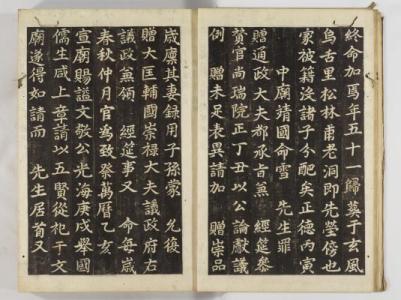 終命加焉年五十一歸葬于玄風
烏古里松林甫老洞即先塋傍也
家被籍沒諸子分配矣正德丙寅
中廟靖國命雪 先生罪
贈通政大夫都承旨兼 經筵參
贊官尚瑞院正丁丑以公論獻議
例 贈未足表異請加 贈崇品
歲廩其妻錄用子孫蒙 允後
贈大匡輔國崇祿大夫議政府右
議政兼領 經筵事又 命每歲
春秋仲月官爲致祭萬曆乙亥
宣廟賜謚文敬公光海庚戌擧國
儒生咸上章請以五賢從祀于文
廟遂得如請而 先生居首又